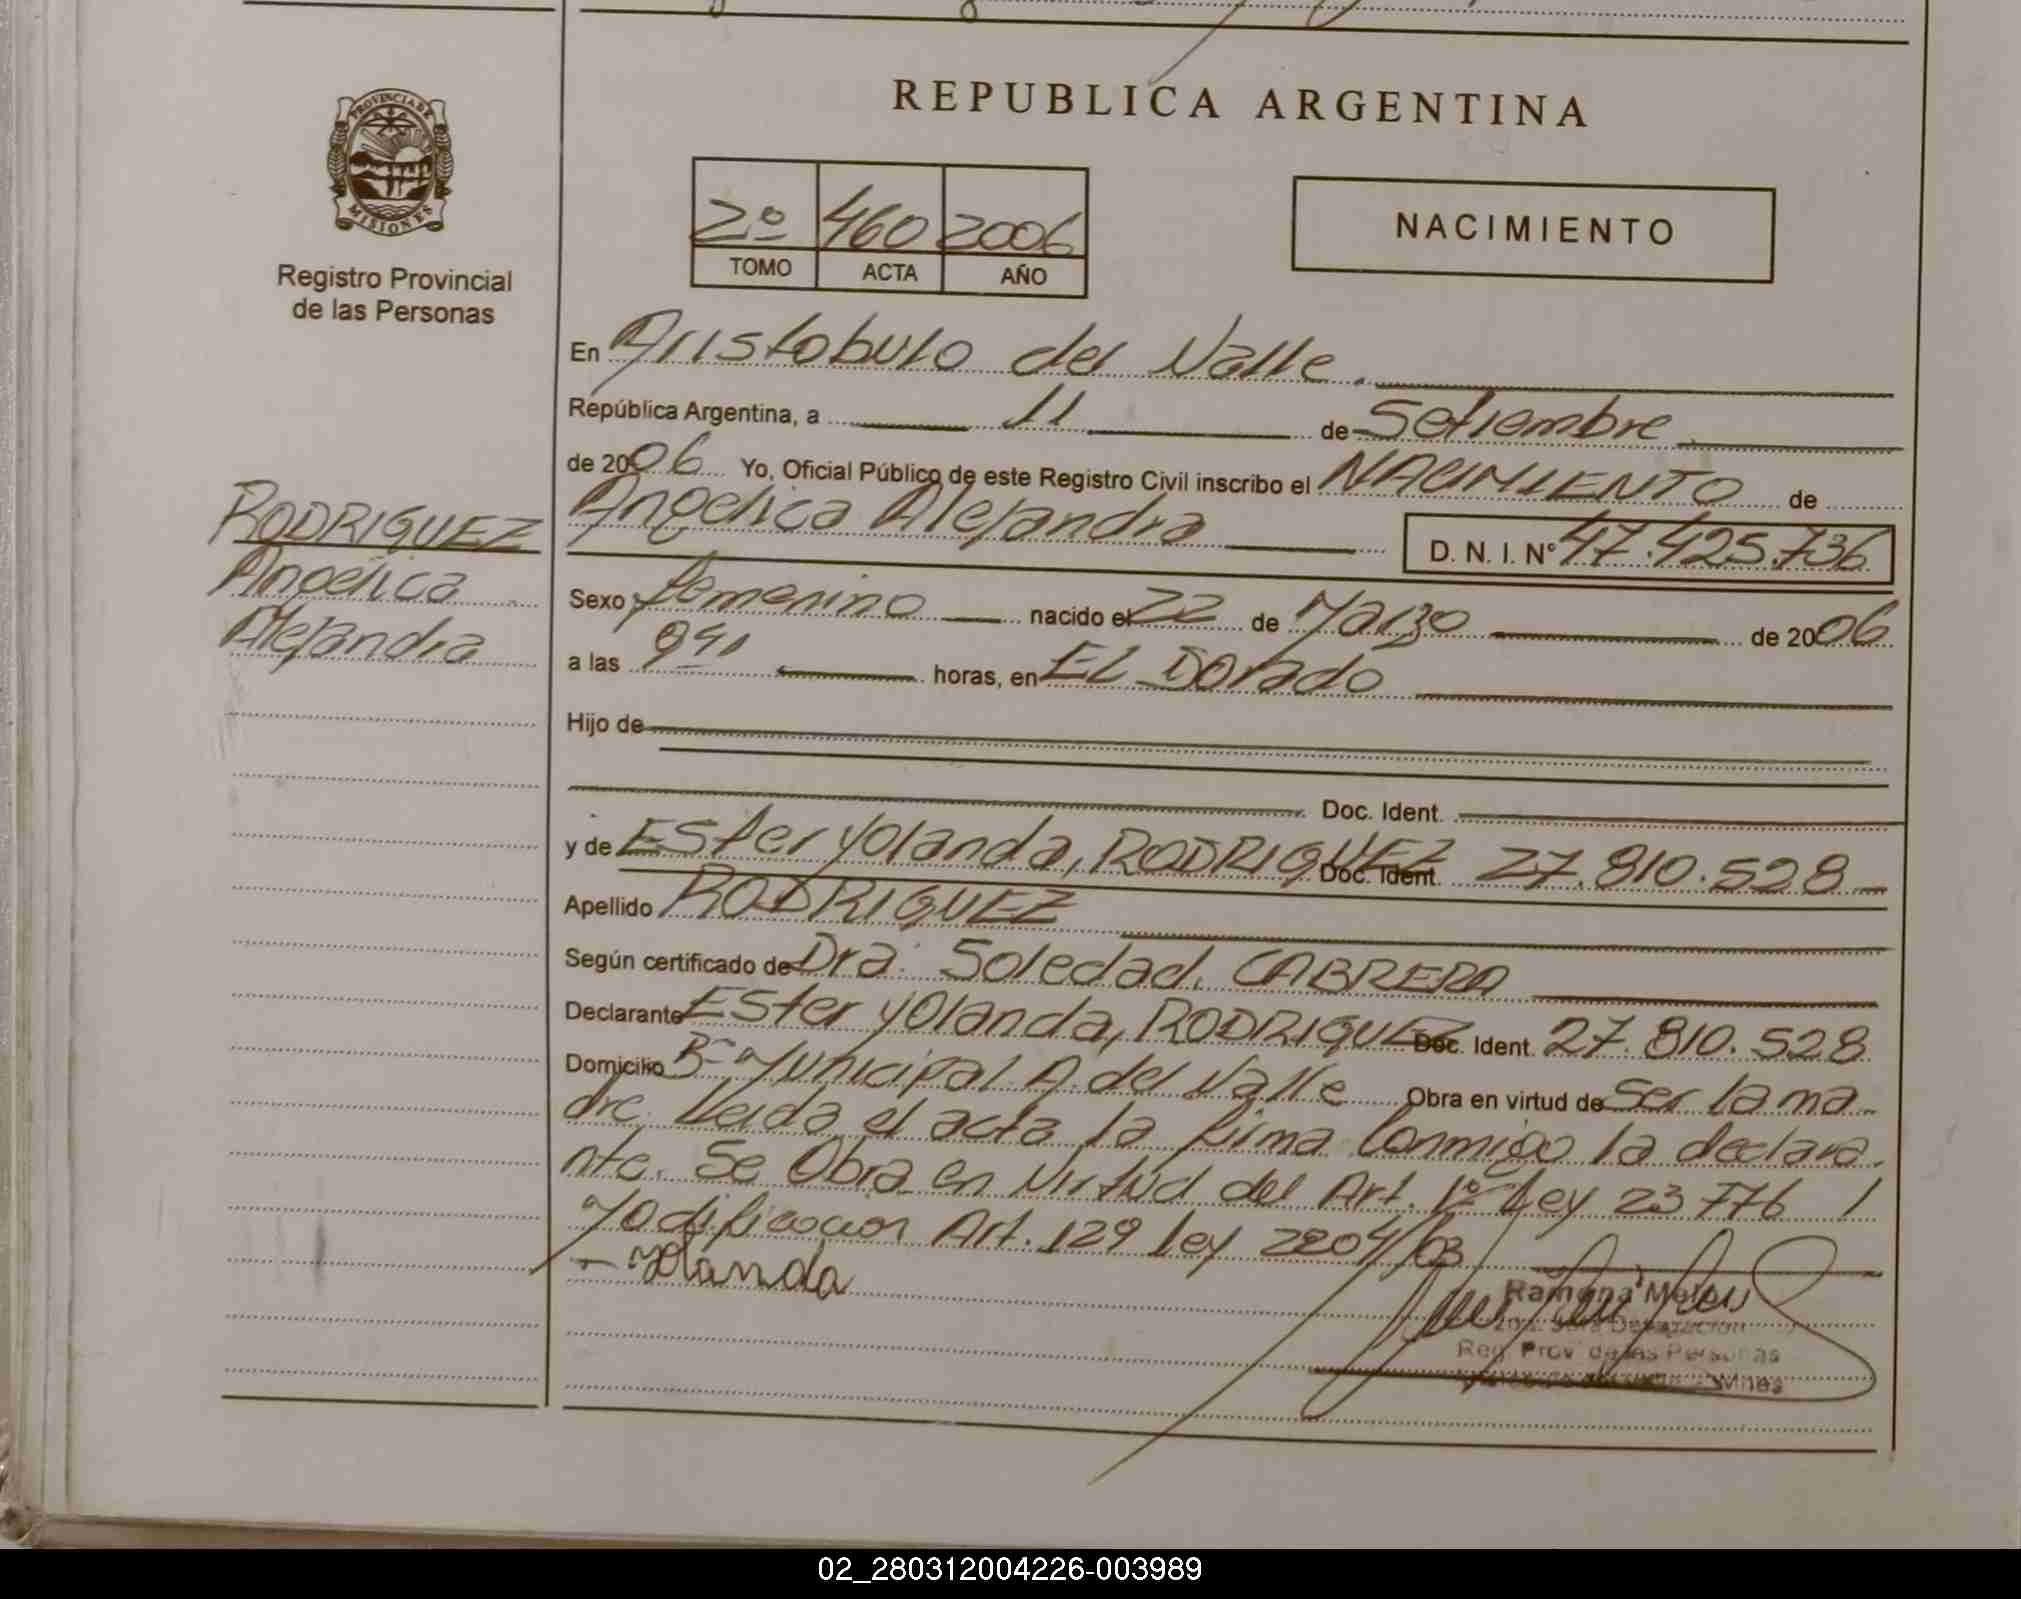 REPUBLICA ARGENTINA
PROVINCIA DE
MISIONES
Registro Provincial
de las Personas
2º 460 2006
TOMO ACTA AÑO
NACIMIENTO
En Aristobulo del Valle.
República Argentina, a 11 de Setiembre
de 2006 Yo, Oficial Público de este Registro Civil inscribo el NACIMIENTO de
RODRIGUEZ
Angelica
Alejandra
Angelica Alejandra D. N. I. Nº 47.425.736
Sexo femenino nacido el 22 de Marzo de 2006
a las 9 40 horas, en EL Dorado
Hijo de
Doc. Ident.
y de Ester Yolanda, RODRIGUEZ Doc. Ident. 27.810.528
Apellido RODRIGUEZ
Según certificado de Dra. Soledad. CABRERA
Declarante Ester Yolanda, RODRIGUEZ Doc. Ident. 27.810.528
Domicilio Bº Municipal A. del Valle Obra en virtud de ser la ma
dre. Leida el acta la firma Conmigo la declara
nte. Se Obra en Virtud del Art. 1º Ley 23776 /
Modificacion Art. 129 Ley 2204/03
Yolanda
Ramona
Delegación
Reg. Prov. de las Personas
Mnes
02_280312004226-003989